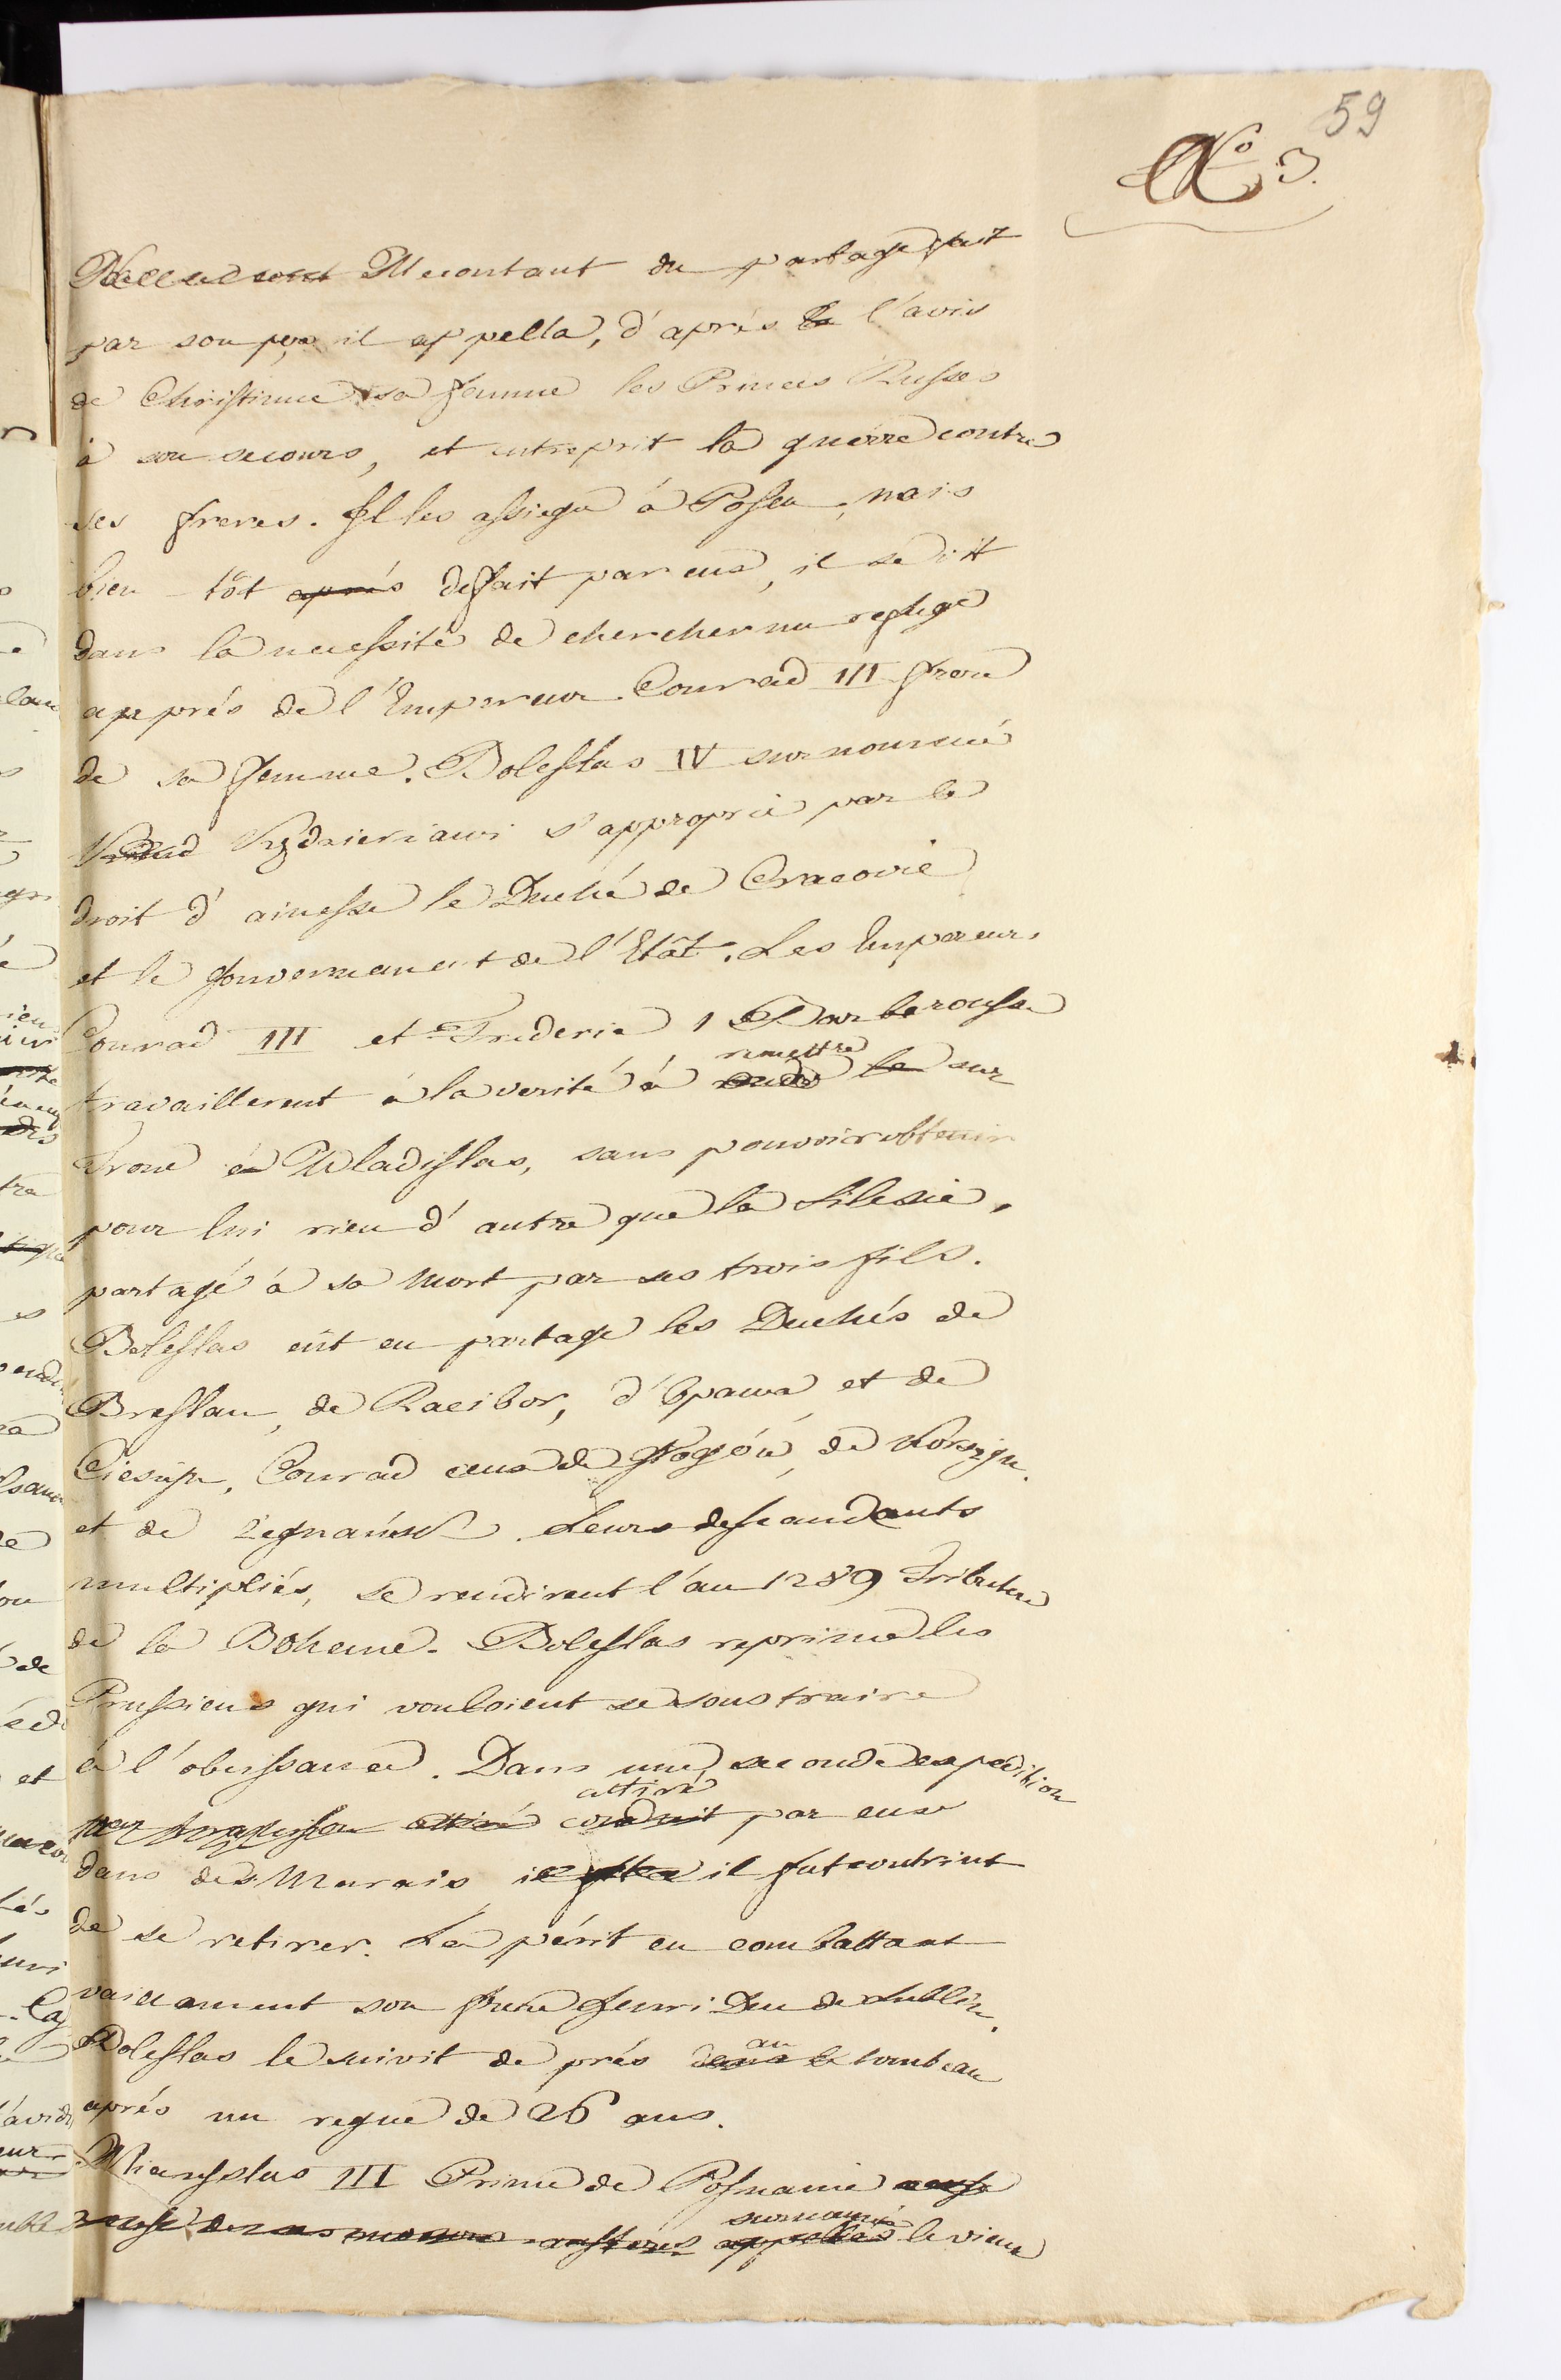 59
No 3.
Mecontant du partage fait
par son pere il appella, d'aprés le l'avis
de Christinne sa femme les Princes Russes
à son secours, et entreprit la guérre contre
ses freres. Il les assiega à Posen, mais
bien-tôt aprés deffait par eux, il se vit
dans la necessité de chercher un refuge
auprés de l'Empereur Conrad III frere
de sa femme. Boleslas IV surnommé
Kędzierzawi s'approprié par le
droit d'ainesse le Duché de Cracovie
et le gouvernement de l'Etât. Les Empereurs
Conrad III et Frideric 1 Barberousse
travaillerent à la verité à remettre le sur
Trone à Wladislas, sans pouvoir obtenir
pour lui rien d'autre que la Silesie,
partagé à sa mort par ses trois fils.
Boleslas eût en partage les Duchés de
Breslau, de Racibor, d'Opawa et de
Cieszyn, Conrad ceux de Głogów, de Kroszyn
et de Żegnańsk. Leurs descendants
multipliés, se rendirent l'an 1289 Tributere
de la Boheme. Boleslas reprime les
Prussiens qui vouloient se soustraire
à l'obeissance. Dans une seconde expédition
par trahison attiré conduit attiré par eux
dans des Marais il il fut contrint
de se retirer. Là périt en combattant
vaillament son frere Henri Duc de Lublin.
Boleslas le suivit de prés dans le au tombeau
aprés un regne de 26 ans.
Miecislas III Prince de Posnanie
de ses moeurs austeres appellés surnommé le vieux